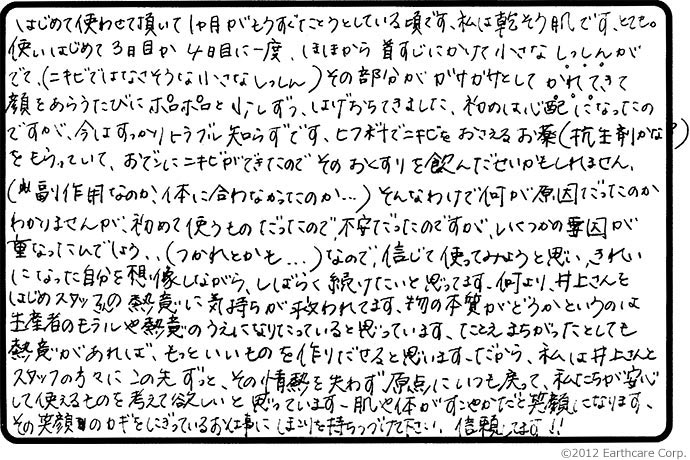 はじめて使わせて頂いて1ヶ月がもうすぐたとうとしている頃です、私は乾そう肌です、とても。
使いはじめて3日目か4日目に一度、ほほから首すじにかけて小さなしっしんが
でて、(ニキビではなさそうな小さなしっしん)その部分がガサガサとしてかれてきて
顔をあらうたびにポロポロと少しずつ、はげおちてきました、初めは心配になったの
ですが、今はすっかりトラブル知らずです、ヒフ科でニキビをおさえるお薬(抗生剤かな?)
をもらっていて、おでこにニキビができたのでそのおくすりを飲んだせいかもしれません、
(副作用なのか、体に合わなかったのか…)そんなわけで何が原因だったのか
わかりませんが、初めて使うものだったので、不安だったのですが、いくつかの要因が
重なったんでしょう、、(つかれとかも…)なので、信じて使ってみようと思い、きれい
になった自分を想像しながら、しばらく続けたいと思ってます、何より、井上さんを
はじめスタッフの熱意に気持ちが救われてます、物の本質がどうかというのは
生産者のモラルや熱意のうえになりたっていると思っています、たとえまちがったとしても
熱意があれば、もっといいものを作りだせると思います、だから、私は井上さんと
スタッフの方々にこの先ずっと、その情熱を失わず原点にいつも戻って、私たちが安心
して使えるものを考えて欲しいと思っています、肌や体がすこやかだと笑顔になります、
その笑顔のカギをにぎっているお仕事にほこりを持ちつづけて下さい、信頼してます!!
©2012 Earthcare Corp.